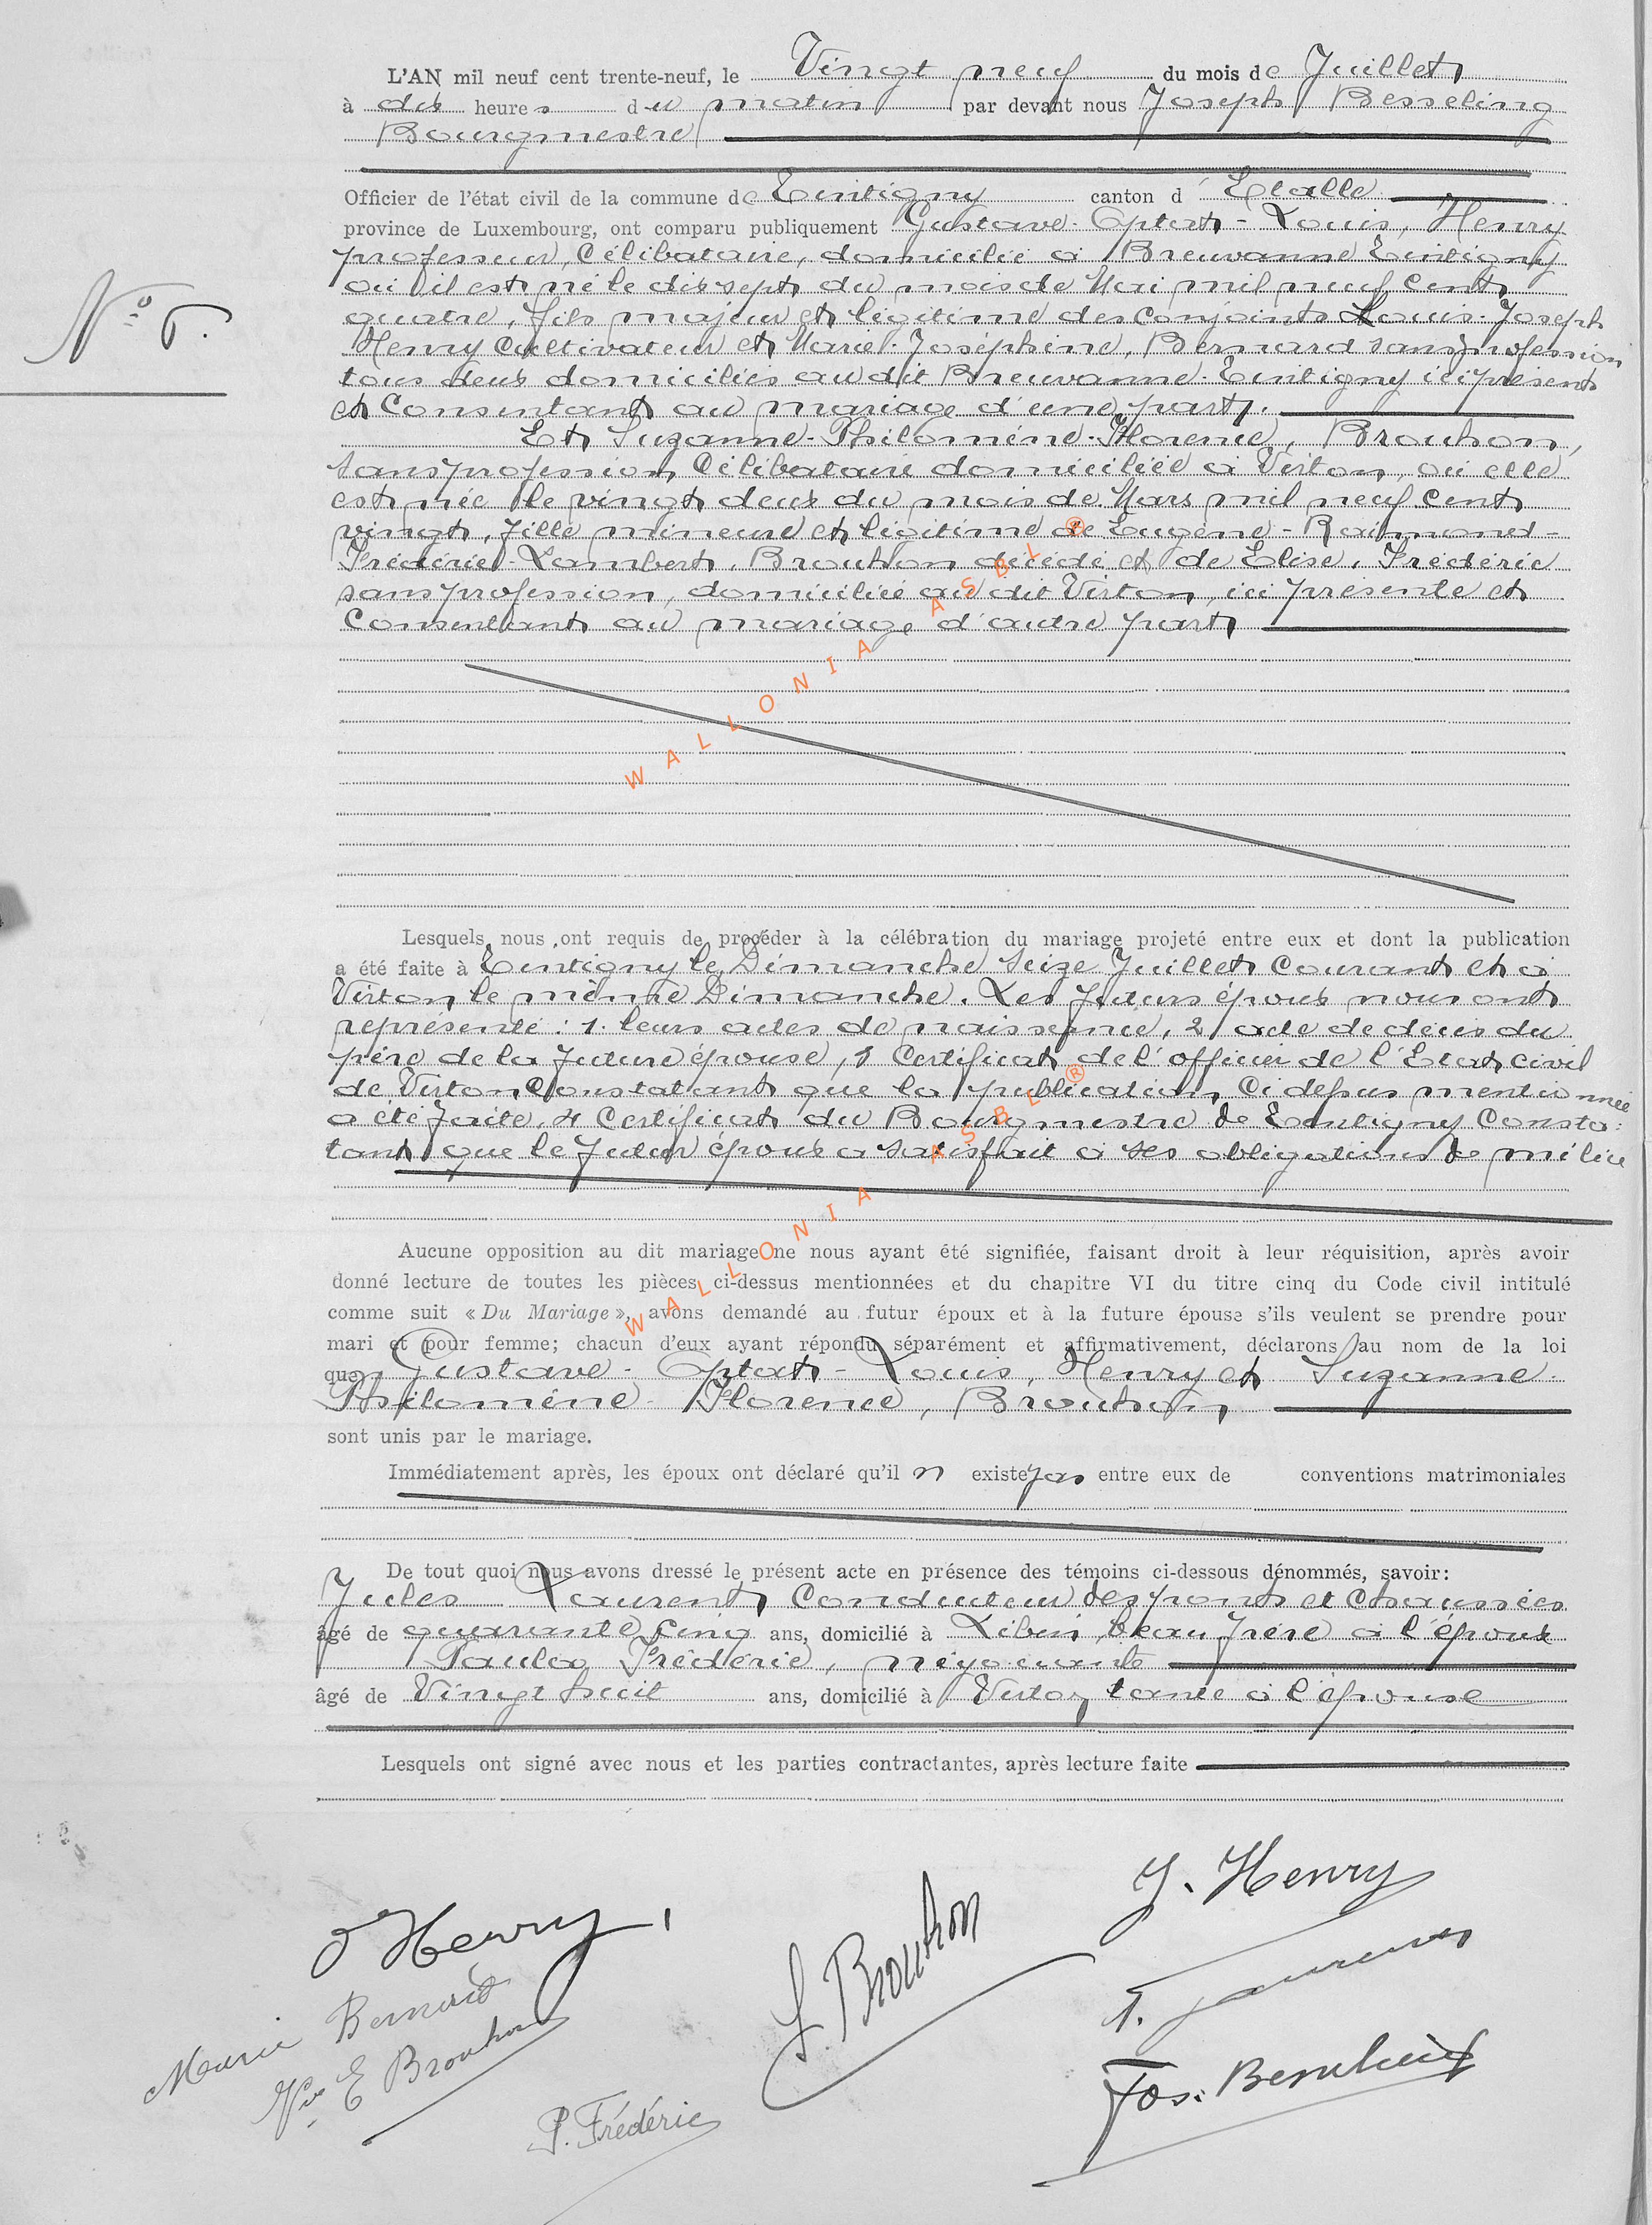 L'AN mil neuf cent trente-neuf, le Vingt neuf du mois de Juillet
à dix heures du matin par devant nous Joseph Besseling
Bourgmestre
Officier de l'état civil de la commune de Tintigny canton d'Etalle
province de Luxembourg, ont comparu publiquement Gustave-Optat-Louis, Henry
professeur, Célibataire, domicilié à Breuvanne Tintigny
où il est né le dix sept du mois de Mai mil neuf cent
N° 6.
quatre, fils majeur et légitime des conjoints Louis-Joseph
Henry Cultivateur et Marie-Joséphine, Bernard sans profession
tous deux domiciliés au dit Breuvanne-Tintigny ici présents
et Consentant au mariage d'une part.
Et Suzanne-Philomène-Florence, Brouhon,
sans profession, Célibataire domiciliée à Virton, où elle
est née le vingt deux du mois de Mars mil neuf cent
vingt, fille mineure et légitime de Eugène-Raimond-
Frédéric-Lambert, Brouhon décédé et de Elise, Frédéric
sans profession, domiciliée au dit Virton, ici présente et
Consentant au mariage d'autre part
WALLONIA ASBL ®
Lesquels nous ont requis de procéder à la célébration du mariage projeté entre eux et dont la publication
a été faite à Tintigny le Dimanche seize Juillet Courant et à
Virton le même Dimanche. Les futurs époux nous ont
représenté : 1. leurs actes de naissance, 2 acte de décès du
père de la future épouse, 3 Certificat de l'officier de l'Etat civil
de Virton Constatant que la publication Ci dessus mentionnée
a été faite. 4 Certificat du Bourgmestre de Tintigny Consta-
tant que le futur époux a satisfait à ses obligations de milice
WALLONIA ASBL ®
Aucune opposition au dit mariage ne nous ayant été signifiée, faisant droit à leur réquisition, après avoir
donné lecture de toutes les pièces ci-dessus mentionnées et du chapitre VI du titre cinq du Code civil intitulé
comme suit « Du Mariage », avons demandé au futur époux et à la future épouse s'ils veulent se prendre pour
mari et pour femme; chacun d'eux ayant répondu séparément et affirmativement, déclarons au nom de la loi
que Gustave-Optat-Louis, Henry et Suzanne-
Philomène-Florence, Brouhon
sont unis par le mariage.
Immédiatement après, les époux ont déclaré qu'il n existe pas entre eux de conventions matrimoniales
De tout quoi nous avons dressé le présent acte en présence des témoins ci-dessous dénommés, savoir:
Jules Laurent Conducteur des ponts et Chaussées
âgé de quarante cinq ans, domicilié à Libin, beau frère à l'époux
Paula Frédéric, négociante
âgé de Vingt huit ans, domicilié à Virton tante à l'épouse
Lesquels ont signé avec nous et les parties contractantes, après lecture faite
J. Henry
Henry
S. Brouhon
Marie Bernard
Vve E Brouhon
P. Frédéric